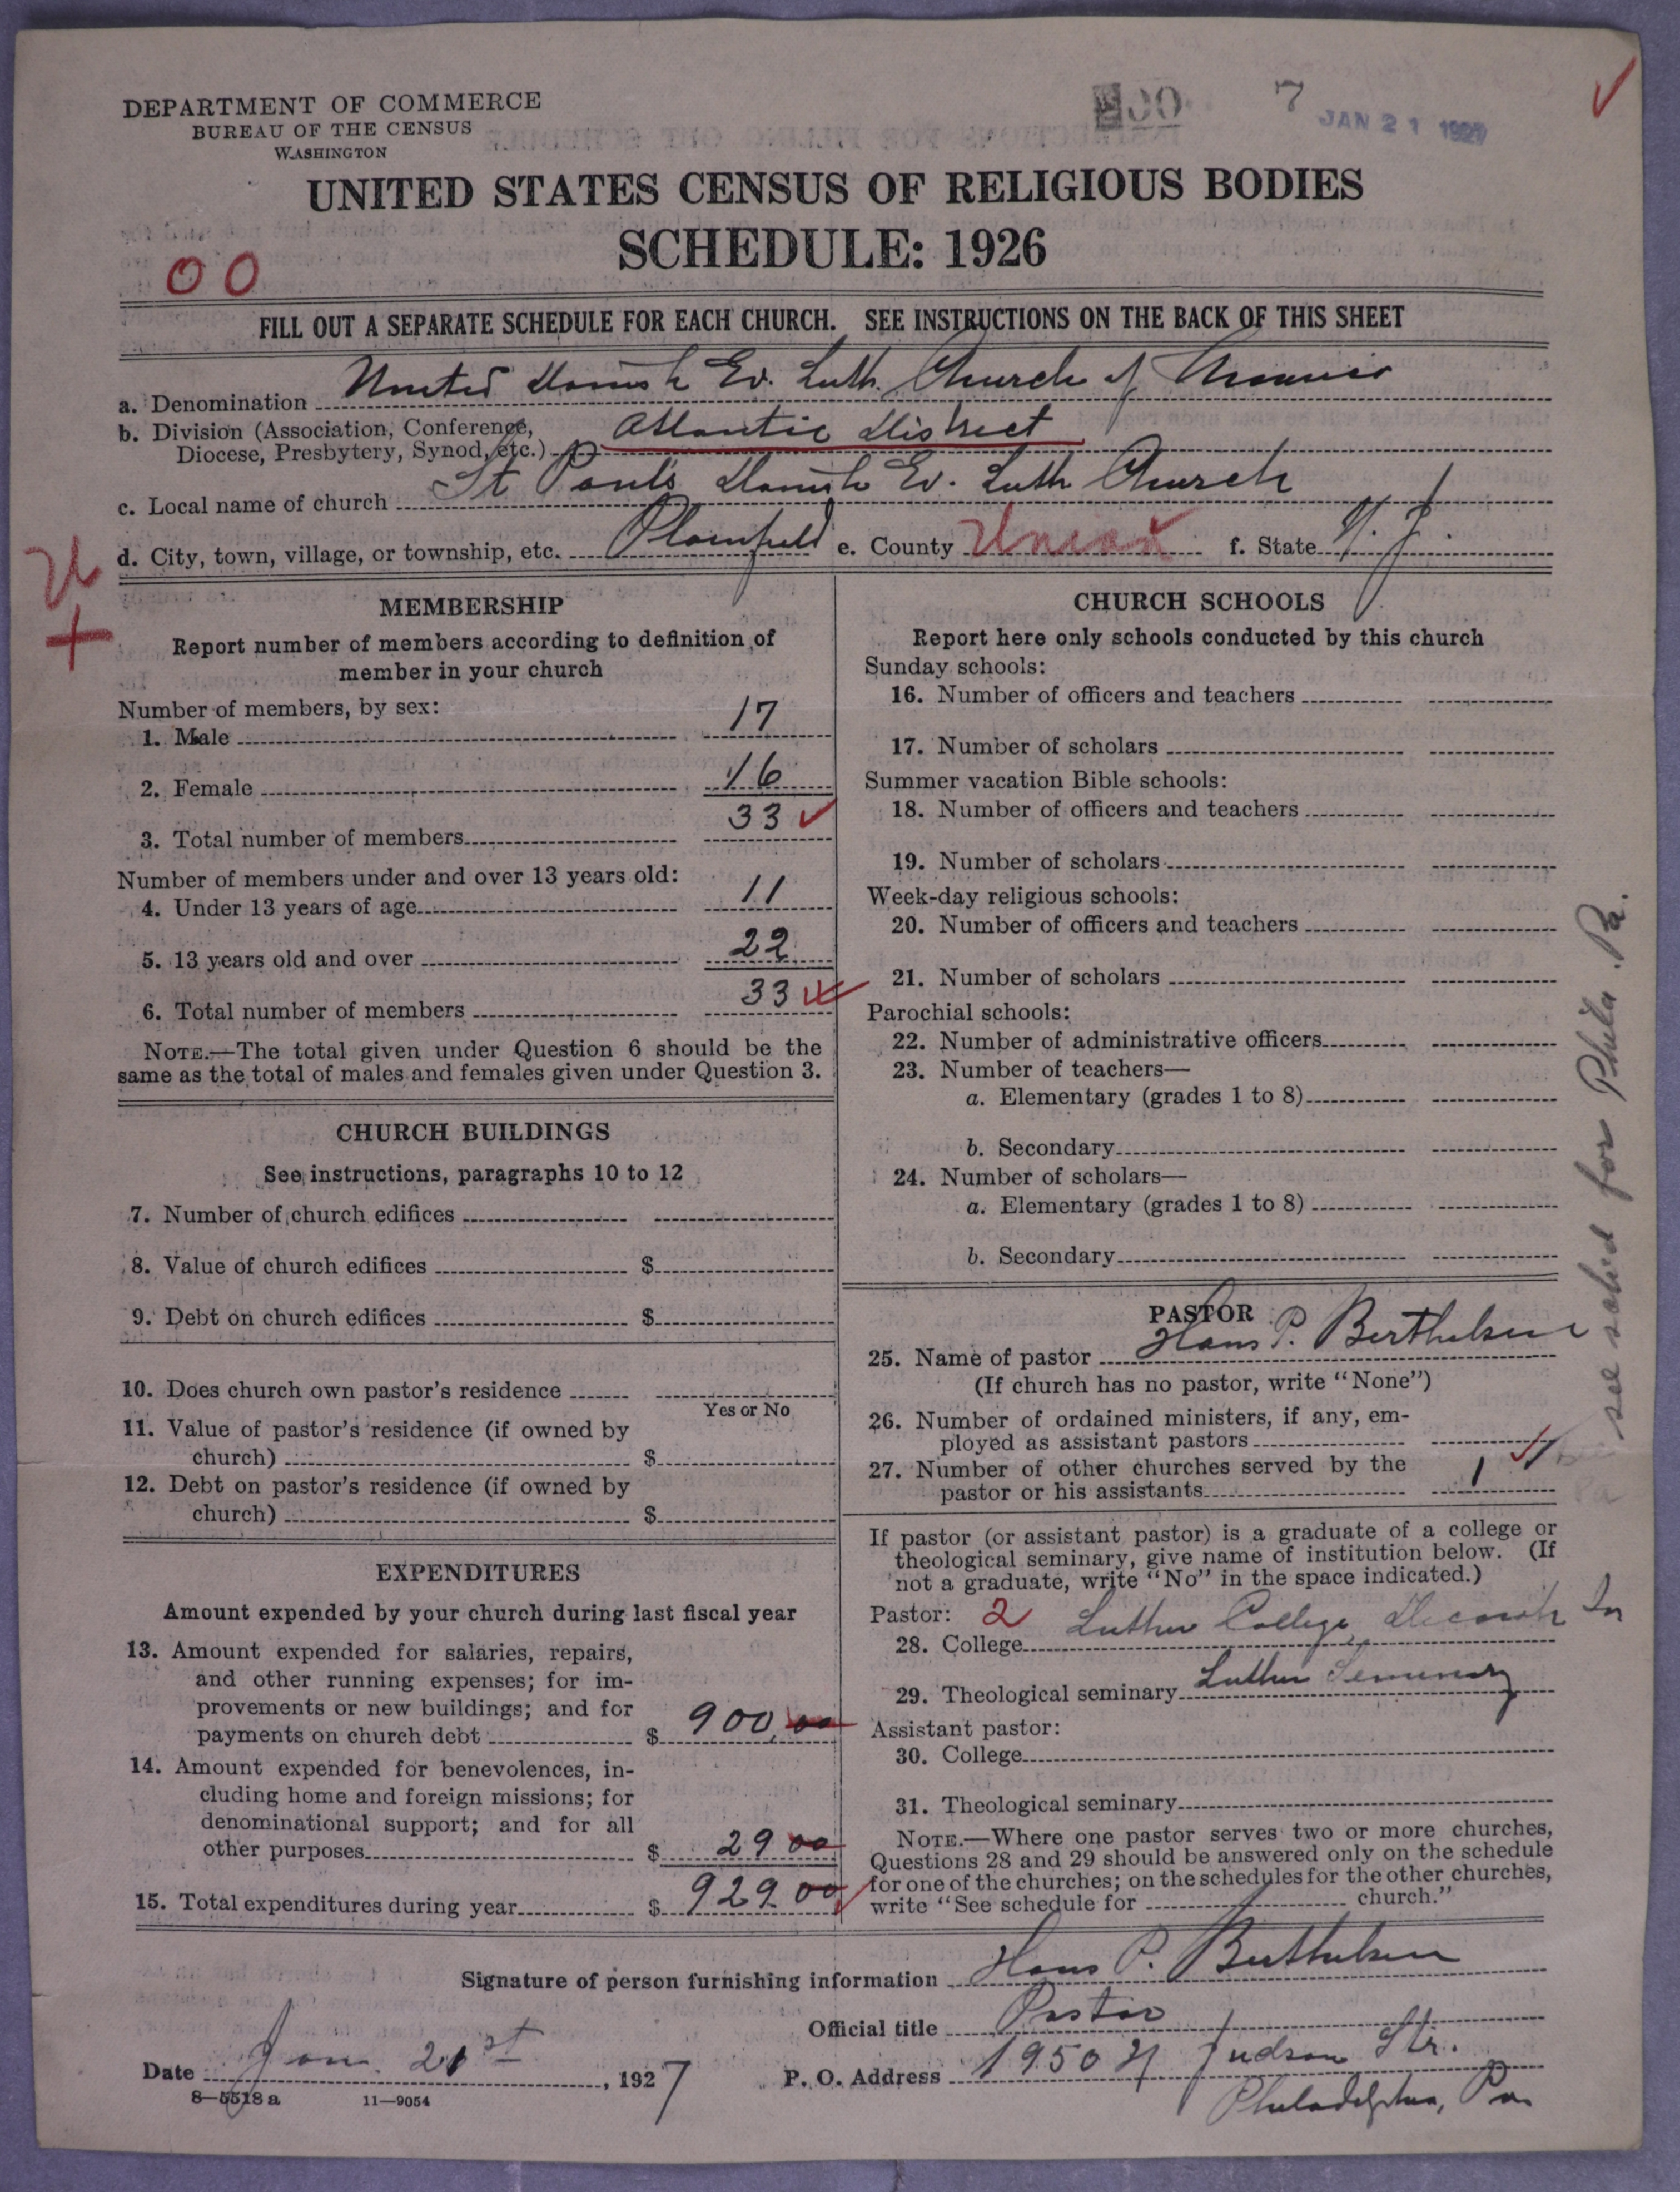 DEPARTMENT OF COMMERCE
BUREAU OF THE CENSUS
WASHINGTON
7
JAN 21 1927
UNITED STATES CENSUS OF RELIGIOUS BODIES
SCHEDULE: 1926
00
FILL OUT A SEPARATE SCHEDULE FOR EACH CHURCH. SEE INSTRUCTIONS ON THE BACK OF THIS SHEET
a. Denomination United Danish Ev. Luth. Church of America
b. Division (Association, Conference,
Diocese, Presbytery, Synod, etc.) Atlantic District
c. Local name of church St Paul's Danish Ev. Luth Church
d. City, town, village, or township, etc. Plainfield e. County Union f. State N. J.
MEMBERSHIP
Report number of members according to definition of
member in your church
Number of members, by sex:
1. Male 17
2. Female 16
3. Total number of members 33
Number of members under and over 13 years old:
4. Under 13 years of age 11
5. 13 years old and over 22
6. Total number of members 33
NOTE.—The total given under Question 6 should be the
same as the total of males and females given under Question 3.
CHURCH BUILDINGS
See instructions, paragraphs 10 to 12
7. Number of church edifices
8. Value of church edifices $
9. Debt on church edifices $
10. Does church own pastor's residence
Yes or No
11. Value of pastor's residence (if owned by
church) $
12. Debt on pastor's residence (if owned by
church) $
EXPENDITURES
Amount expended by your church during last fiscal year
13. Amount expended for salaries, repairs,
and other running expenses; for im-
provements or new buildings; and for
payments on church debt $ 900.00
14. Amount expended for benevolences, in-
cluding home and foreign missions; for
denominational support; and for all
other purposes $ 29 00
15. Total expenditures during year $ 929 00
CHURCH SCHOOLS
Report here only schools conducted by this church
Sunday schools:
16. Number of officers and teachers
17. Number of scholars
Summer vacation Bible schools:
18. Number of officers and teachers
19. Number of scholars
Week-day religious schools:
20. Number of officers and teachers
21. Number of scholars
Parochial schools:
22. Number of administrative officers
23. Number of teachers—
a. Elementary (grades 1 to 8)
b. Secondary
24. Number of scholars—
a. Elementary (grades 1 to 8)
b. Secondary
PASTOR
25. Name of pastor Hans P. Berthelsen
(If church has no pastor, write "None")
26. Number of ordained ministers, if any, em-
ployed as assistant pastors
27. Number of other churches served by the
pastor or his assistants 1
If pastor (or assistant pastor) is a graduate of a college or
theological seminary, give name of institution below. (If
not a graduate, write "No" in the space indicated.)
Pastor: 2
28. College Luther College, Decorah Ia
29. Theological seminary Luther Seminary
Assistant pastor:
30. College
31. Theological seminary
NOTE.—Where one pastor serves two or more churches,
Questions 28 and 29 should be answered only on the schedule
for one of the churches; on the schedules for the other churches,
write "See schedule for church."
see sched for Phila. Pa.
Signature of person furnishing information Hans P. Berthelsen
Official title Pastor
Date Jan. 21st, 1927 P. O. Address 1950 N Judson Str.
Philadelphia, Pa
8—5518 a 11—9054